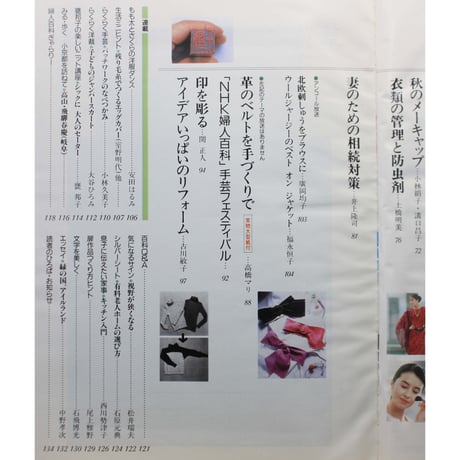 秋のメーキャップ 小林絹子・溝口昌子 72
衣類の管理と防虫剤 土橋明美 76
妻のための相続対策 井上隆司 81
●アンコール放送
北欧刺しゅうをブラウスに 廣岡均子 103
ウールジャージーのベスト オン ジャケット 福永恒子 104
●左記のテーマの放送はありません
革のベルトを手づくりで 実物大型紙付 高橋マリ 88
「NHK婦人百科」手芸フェスティバル 92
印を彫る 関正人 94
アイデアいっぱいのリフォーム 古川敏子 97
連載
もも太とさくらの洋服ダンス 安田はるみ 106
生活ミニヒント・残り毛糸でつくるエッグカバー 室野明代/他 107
らくらく手芸・パッチワークのなべつかみ 小林久美子 110
らくらく洋裁・子どものジャンパースカート 大谷ひろみ 112
甕邦子の楽しいニット講座・シックに 大人のセーター 甕邦子 114
みる・歩く 小京都を訪ねて・高山・飛騨春慶〈岐阜〉 116
婦人百科ぎゃらりー 118
百科Q&A 121
気になるサイン・視野が狭くなる 松井瑞夫 122
シルバーシート・有料老人ホームの選び方 石原元典 124
息子に伝えたい家事・キッチン入門 西川勢津子 126
扉作品づくり方ヒント 尾上雅野 129
文字を美しく 石飛博光 130
エッセイ・緑の国、アイルランド 中野孝次 132
読者のひろば・お知らせ 134